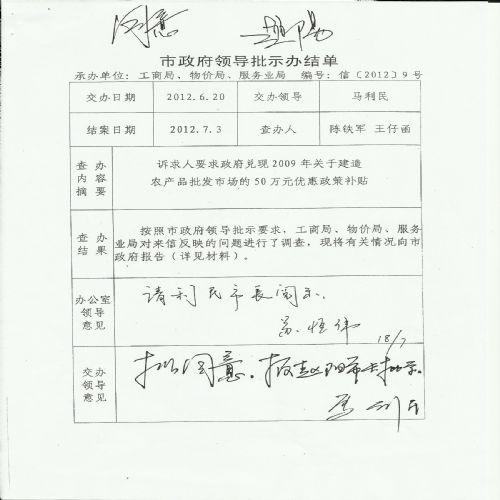 同意 赵阳
市政府领导批示办结单
承办单位：工商局、物价局、服务业局 编号：信〔2012〕9号
交办日期 2012.6.20 交办领导 马利民
结案日期 2012.7.3 查办人 陈铁军 王仔函
查办内容摘要
诉求人要求政府兑现2009年关于建造
农产品批发市场的50万元优惠政策补贴
查办结果
按照市政府领导批示要求，工商局、物价局、服务
业局对来信反映的问题进行了调查，现将有关情况向市
政府报告（详见材料）。
办公室领导意见
请利民市长阅示.
18/7
交办领导意见
拟同意. 报赵阳市长批示.
马利民